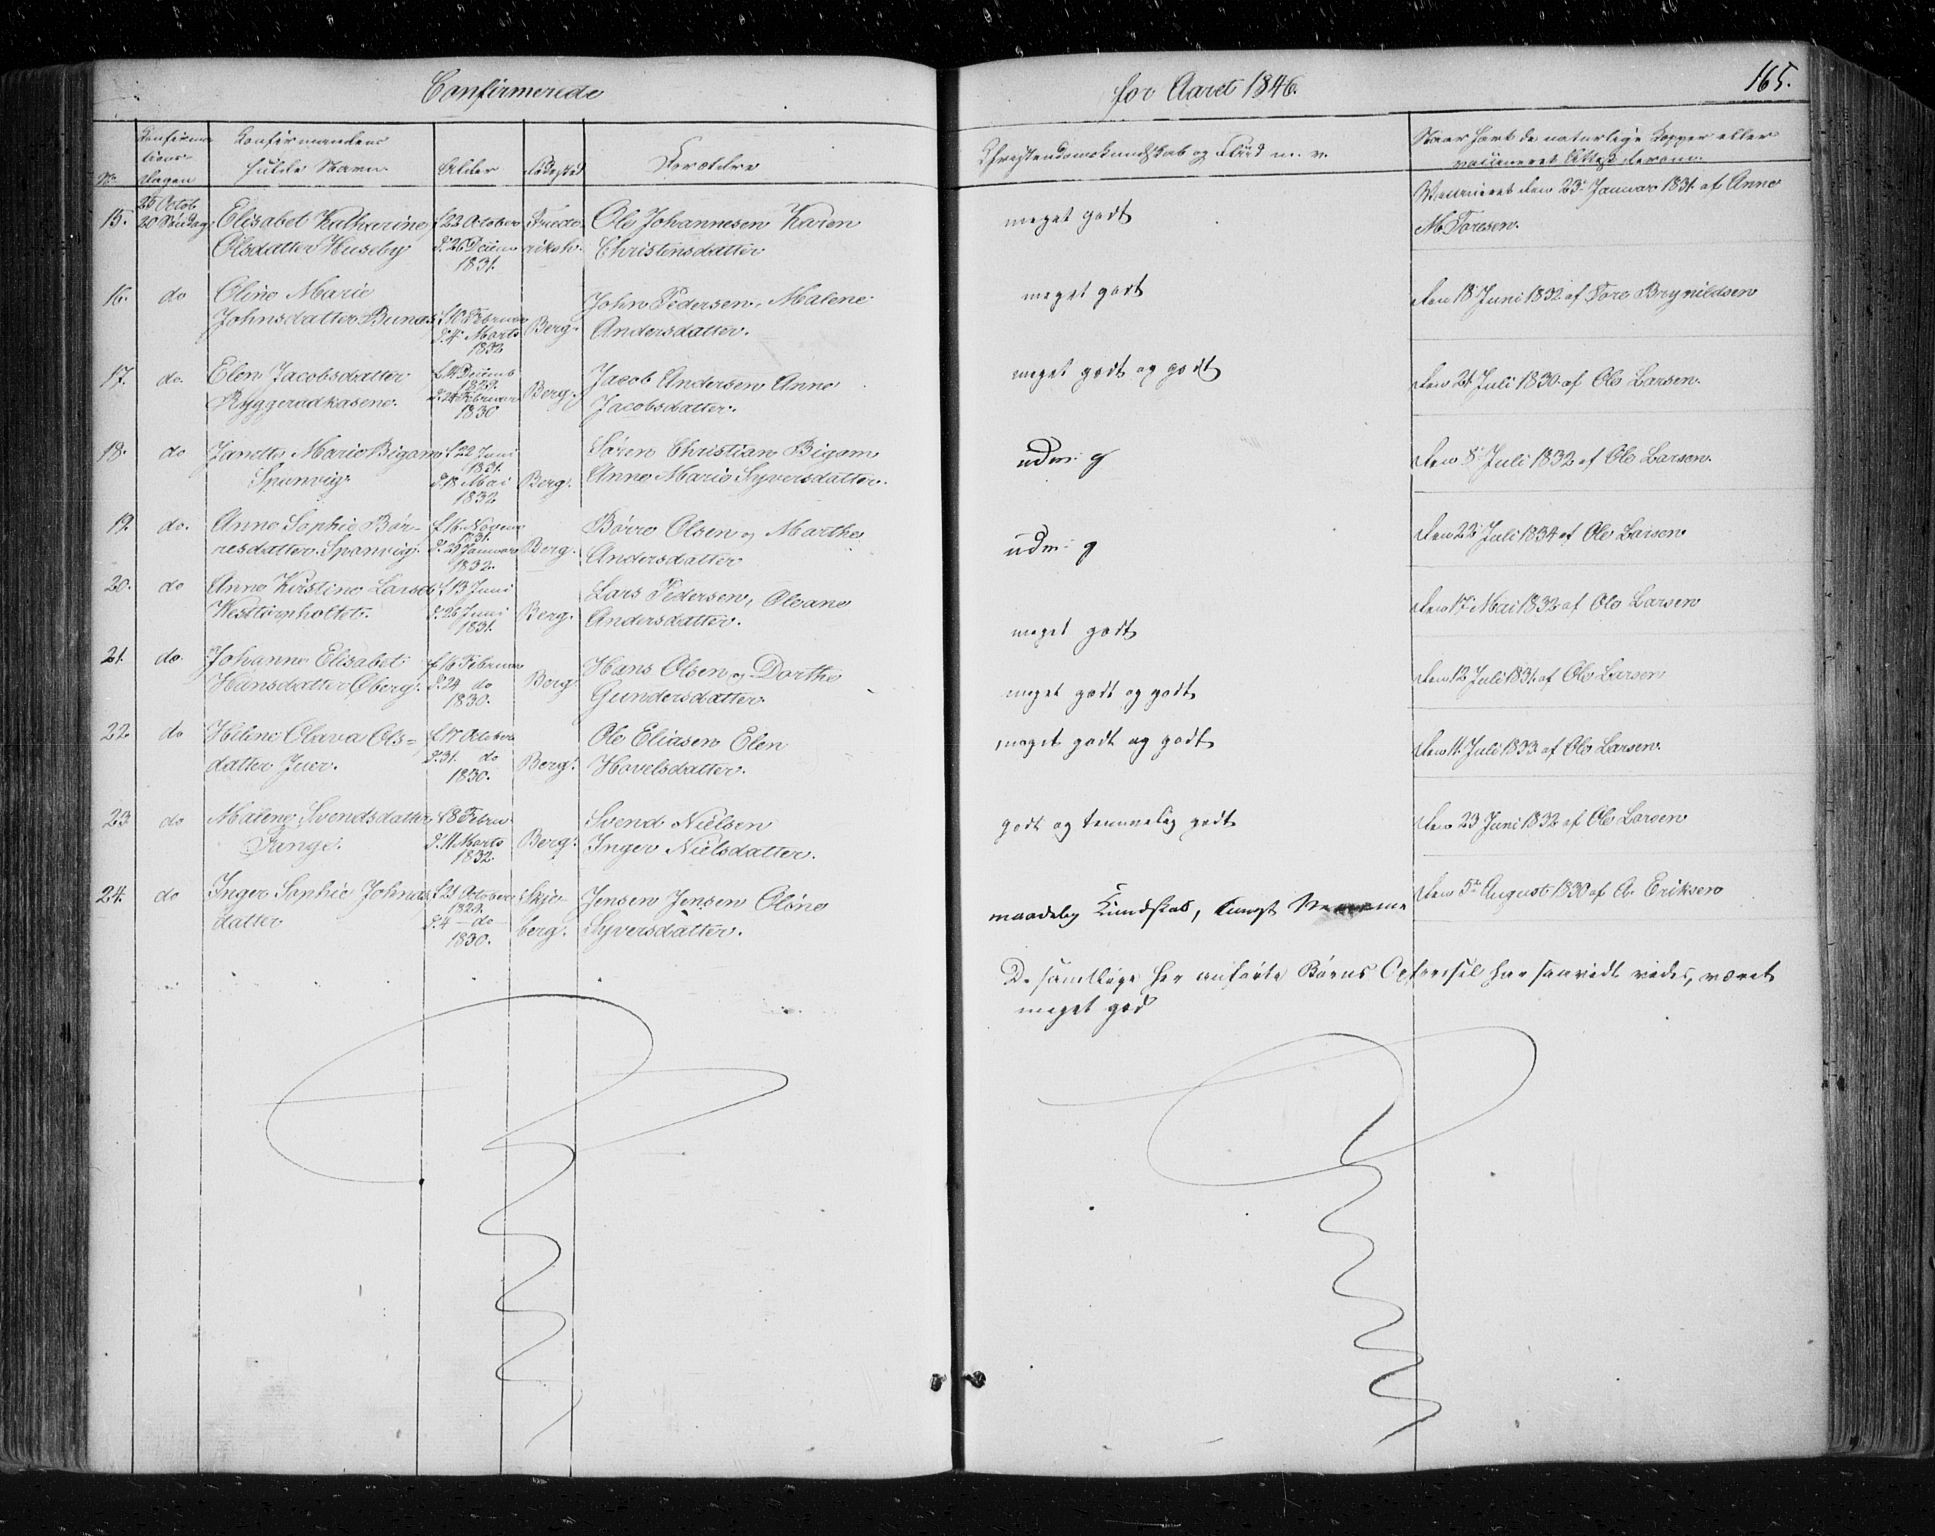 Confirmerede
for Aaret 1846.
165.
Confirma-
tions-
Dagen
No
Konfirmandens
fulde Navn.
Alder
Fødested
Forældre
Christendomskundskab og Flid m. v.
Naar havt de naturlige Kopper eller
vaccineret Attest derom.
15.
25 Octob.
20 Søndag
Elisabet Katharine
Olsdatter Huseby
f. 22 October
d. 26 Decem
1831.
Frede-
riksh.
Ole Johannesen Karen
Christensdatter
meget godt
Vaccineret den 23 Januar 1831 af Anne
M. Toresen.
16.
do
Oline Marie
Johnsdatter
f. 10 Februar
d. 4 Marts
1832
Berg.
John Pedersen, Malene
Andersdatter.
meget godt
den 18 Juni 1832 af Tore Brynildsen
17.
do.
Elen Jacobsdatter
Ryggeradkasene.
f. 14 Decemb
1829.
d. 24 Februar
1830
Berg.
Jacob Andersen Anne
Jacobsdatter.
meget godt og godt
den 21 Juli 1830 af Ole Larsen.
18.
do
Janette Marie Bigom
Sponvig.
f. 22 Juni
1831.
d. 18 Mai
1832
Berg.
Søren Christian Bigom
Anne Marie Syversdatter.
udm: g
den 8 Juli 1832 af Ole Larsen.
19.
do.
Anne Sophie Bør-
resdatter Sponvig.
f. 16 Novem
1831.
d. 29 Januar
1832.
Berg.
Børre Olsen og Marthe
Andersdatter
udm: g
den 22 Juli 1834 af Ole Larsen
20.
do
Anne Kirstine Larsd.
Westtorpholtet.
f. 13 Juni
d. 26 Juni
1831.
Berg.
Lars Pedersen, Oleane
Andersdatter.
meget godt
den 17 Mai 1832 af Ole Larsen
21.
do.
Johanne Elisabet
Hansdatter Oberg.
f. 16 Februar
d. 24 do
1830.
Berg
Hans Olsen og Dorthe
Gundersdatter
meget godt og godt
den 12 Juli 1831 af Ole Larsen
22.
do
Helene Olava Ols-
datter Juer.
f. 17 October
d. 31. do
1830.
Berg.
Ole Eliasen Elen
Hovelsdatter.
meget godt og godt
den 11 Juli 1833 af Ole Larsen.
23.
do
Malene Svendsdatter
Tunge.
f. 8 Febru
d. 11 Marts
1832.
Berg.
Svend Nielsen
Inger Nielsdatter.
godt og temmelig godt
den 23 Juni 1832 af Ole Larsen
24.
do
Inger Sophie Johnas
datter
f. 25 October
1829.
d. 4 do
1830.
Skje-
berg.
Jensen Jensen Oline
Syversdatter.
maadelig Kundskab, tungt Nemme
den 5te August 1830 af A. Eriksen
De samtlige her anførte Børns Opførsel har saavidt vides, været
meget god